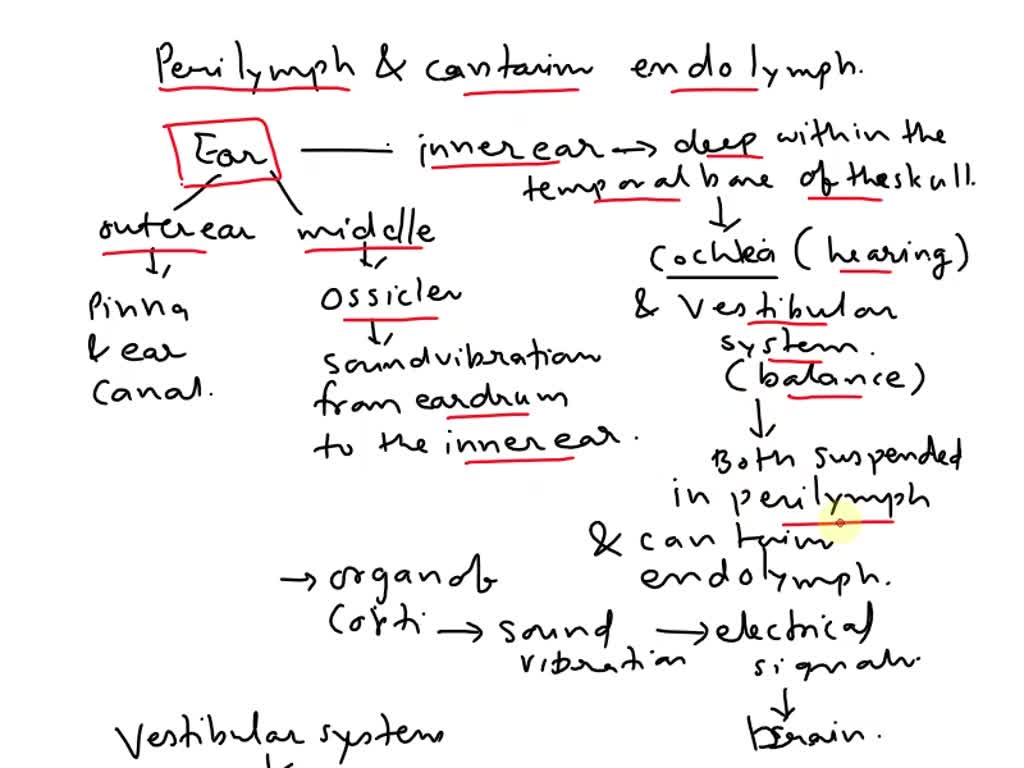 Perilymph & contain endolymph.
Ear — inner ear → deep within the
temporal bone of the skull.
outer ear
middle
↓
Pinna
& ear
canal.
↓
Ossicles
↓
sound vibration
from eardrum
to the inner ear.
↓
Cochlea (hearing)
& Vestibular
system.
(balance)
↓
Both suspended
in perilymph
& contain
endolymph.
→ organ of
Corti → sound
vibration → electrical
signals.
↓
brain.
Vestibular system